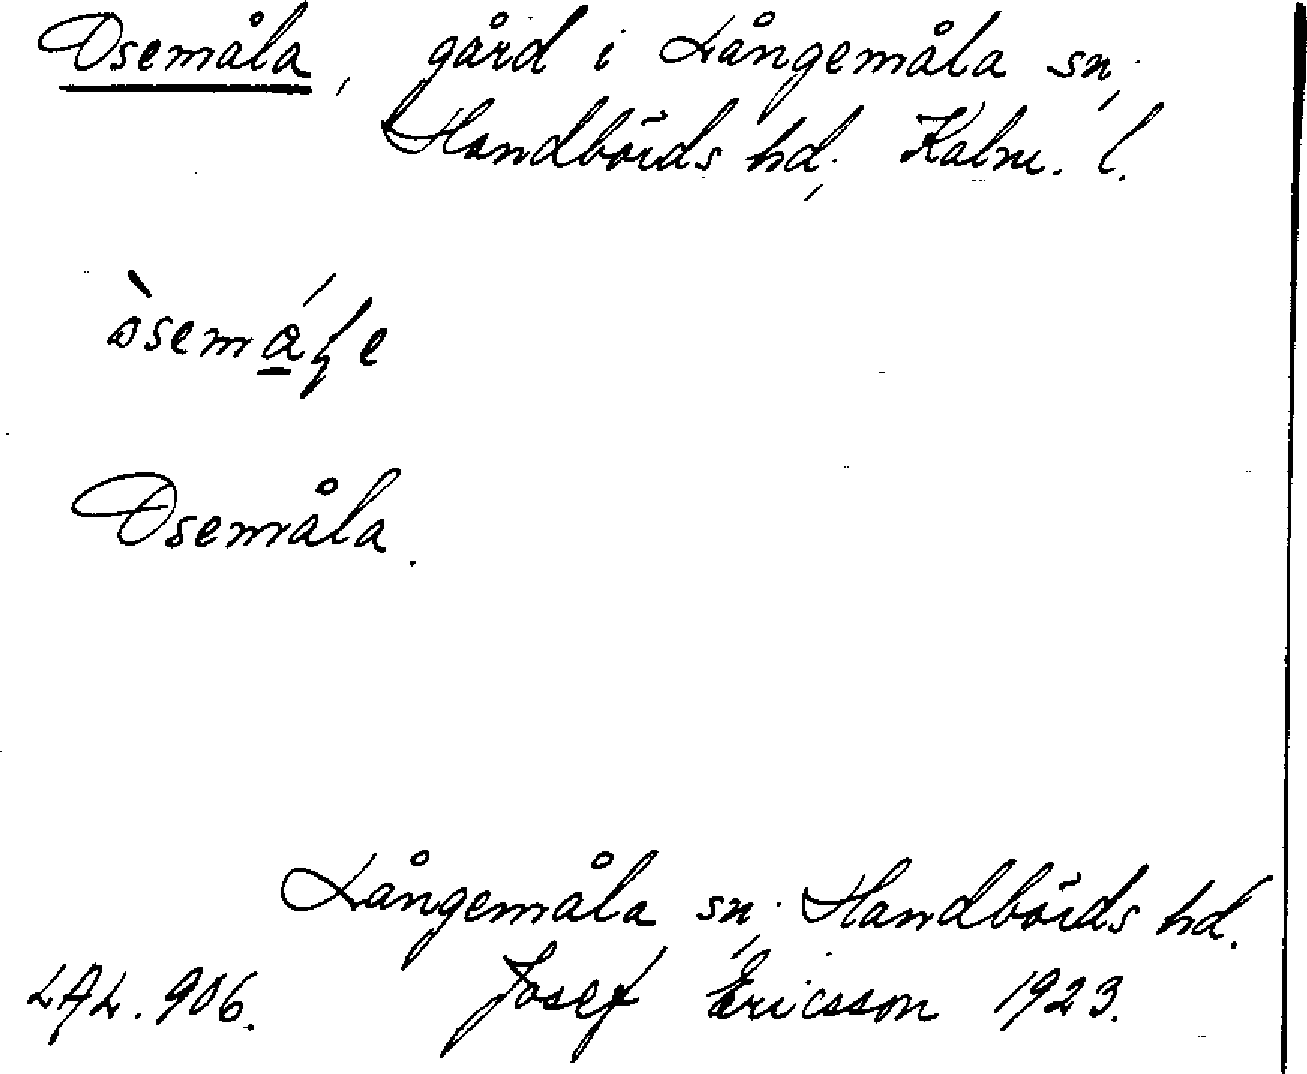 Osemåla, gård i Långemåla sn;
Handbörds hd; Kalm. l.
Osemåla.
Långemåla sn; Handbörds hd.
LAL. 906. Josef Ericsson 1923.